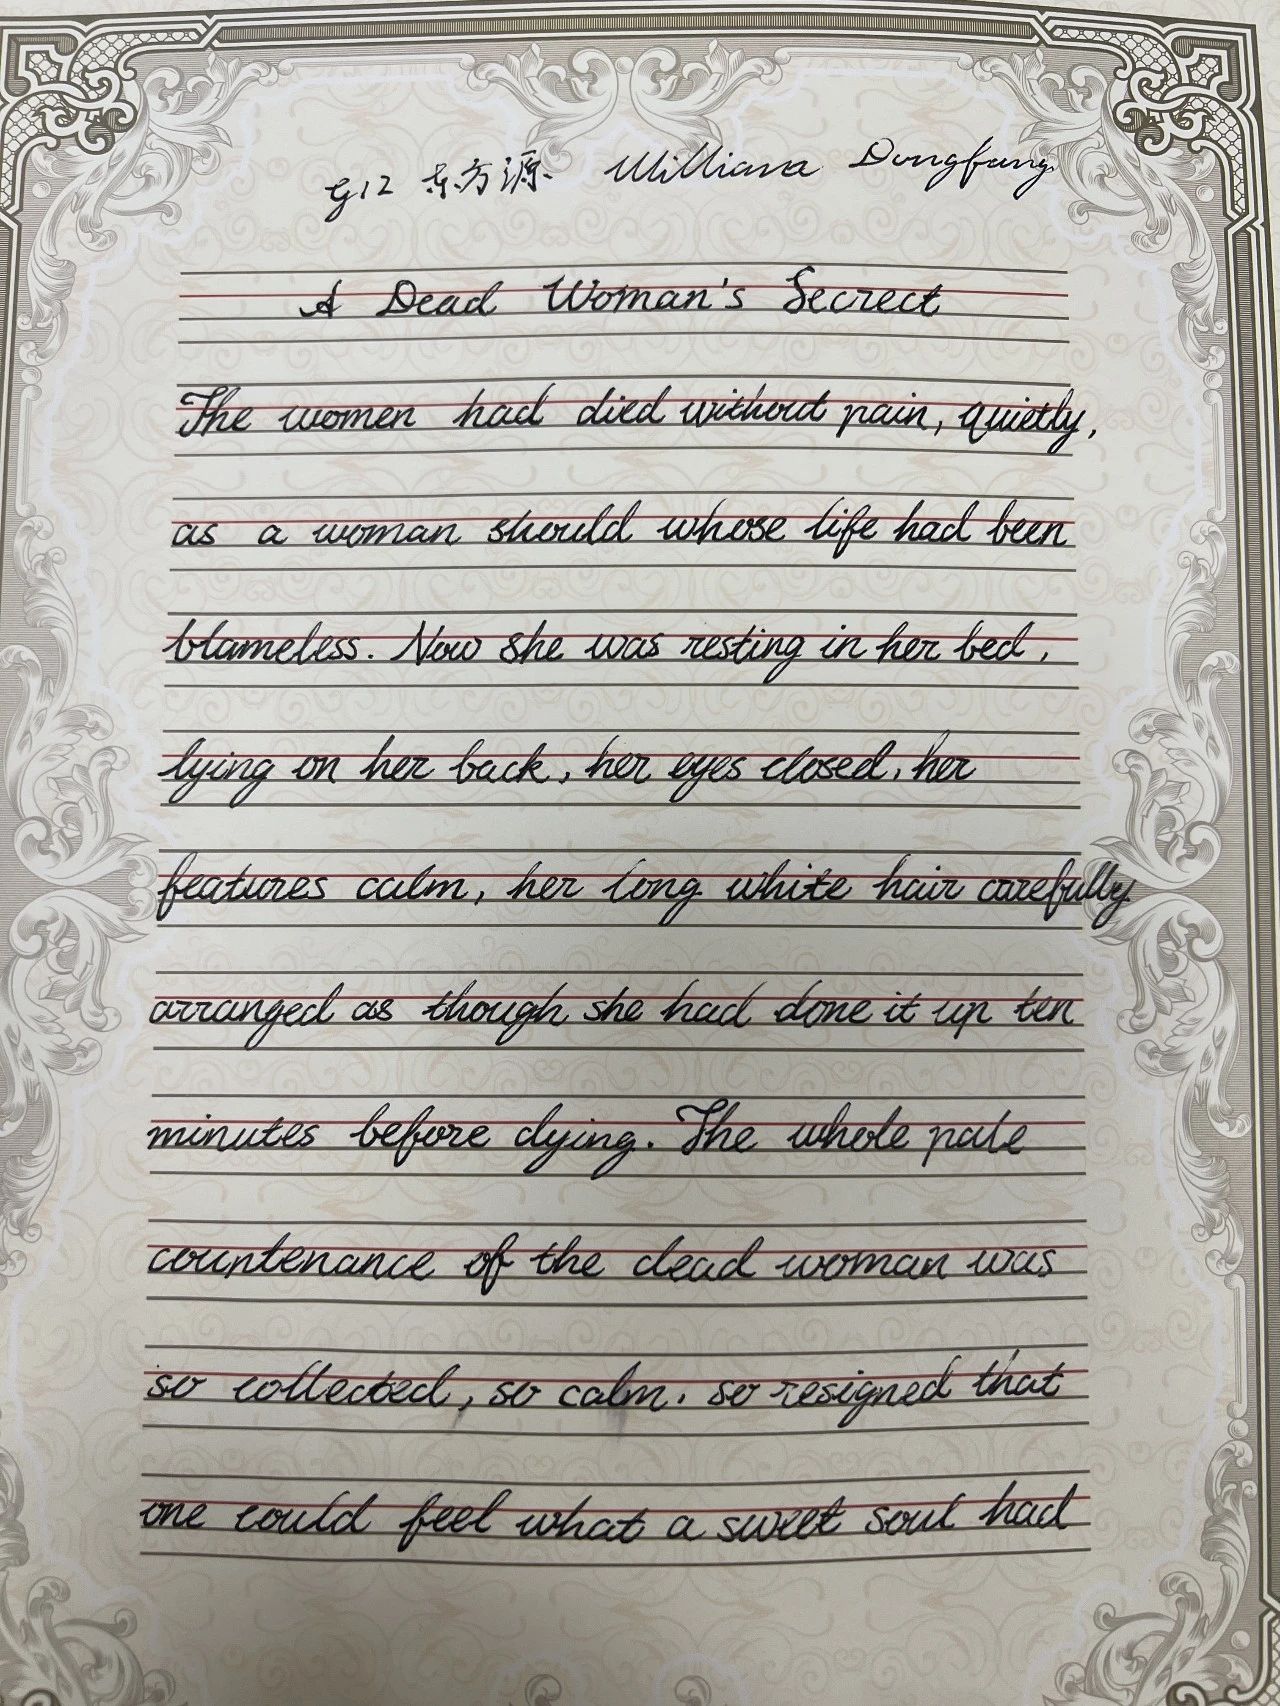 G12 东方源 Williana Dongfang
A Dead Woman's Secrect
The women had died without pain, quietly,
as a woman should whose life had been
blameless. Now she was resting in her bed,
lying on her back, her eyes closed, her
features calm, her long white hair carefully
arranged as though she had done it up ten
minutes before dying. The whole pale
countenance of the dead woman was
so collected, so calm, so resigned that
one could feel what a sweet soul had